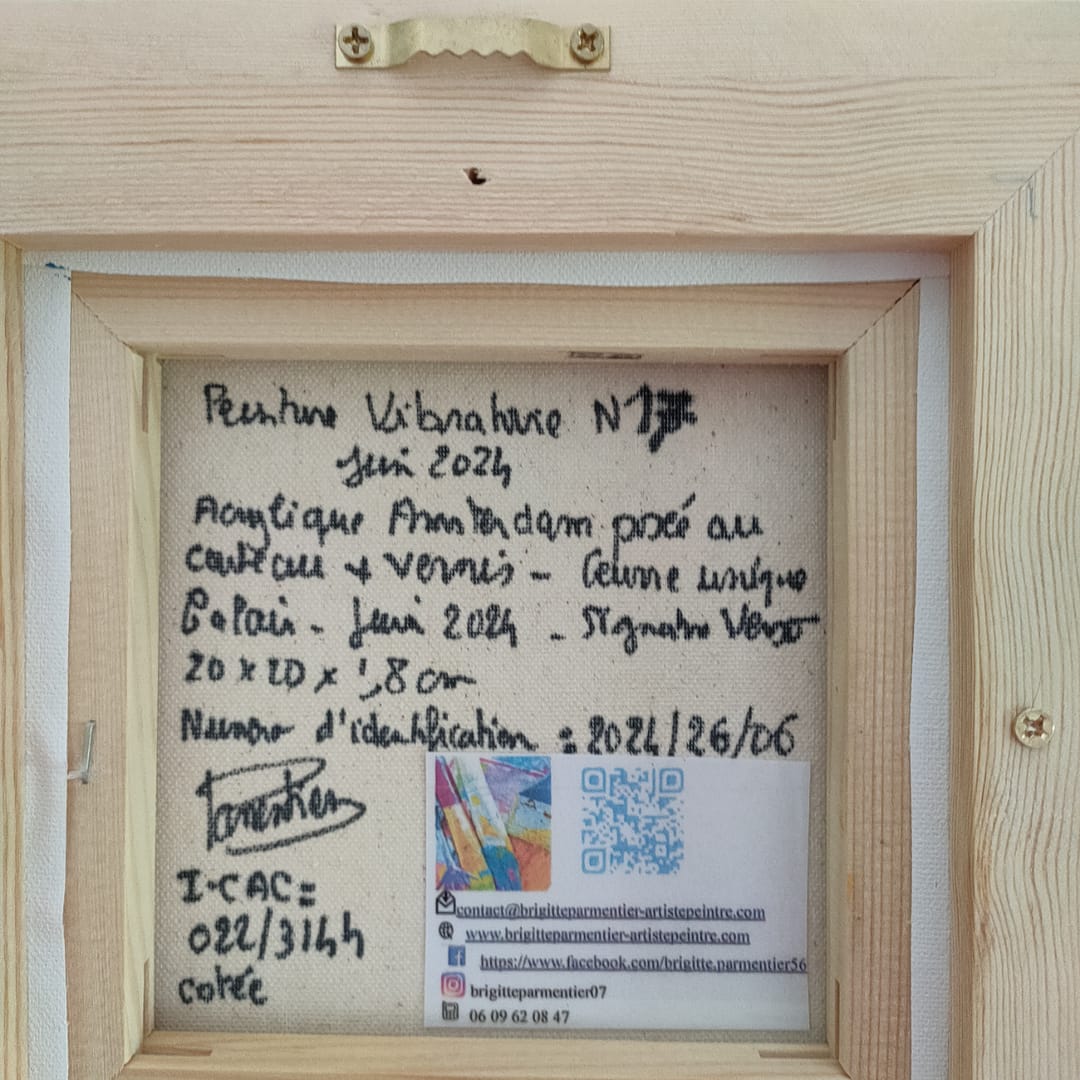 Peinture Vibrature N17
Juin 2024
Acrylique Amsterdam posé au
couteau + vernis - Œuvre unique
Juin 2024 - Signature Verso
20 x 20 x 1,8 cm
Numéro d'identification : 2024/26/06
Parmentier
I-CAC =
022/3144
cotée
contact@brigitteparmentier-artistepeintre.com
www.brigitteparmentier-artistepeintre.com
https://www.facebook.com/brigitte.parmentier56
brigitteparmentier07
06 09 62 08 47